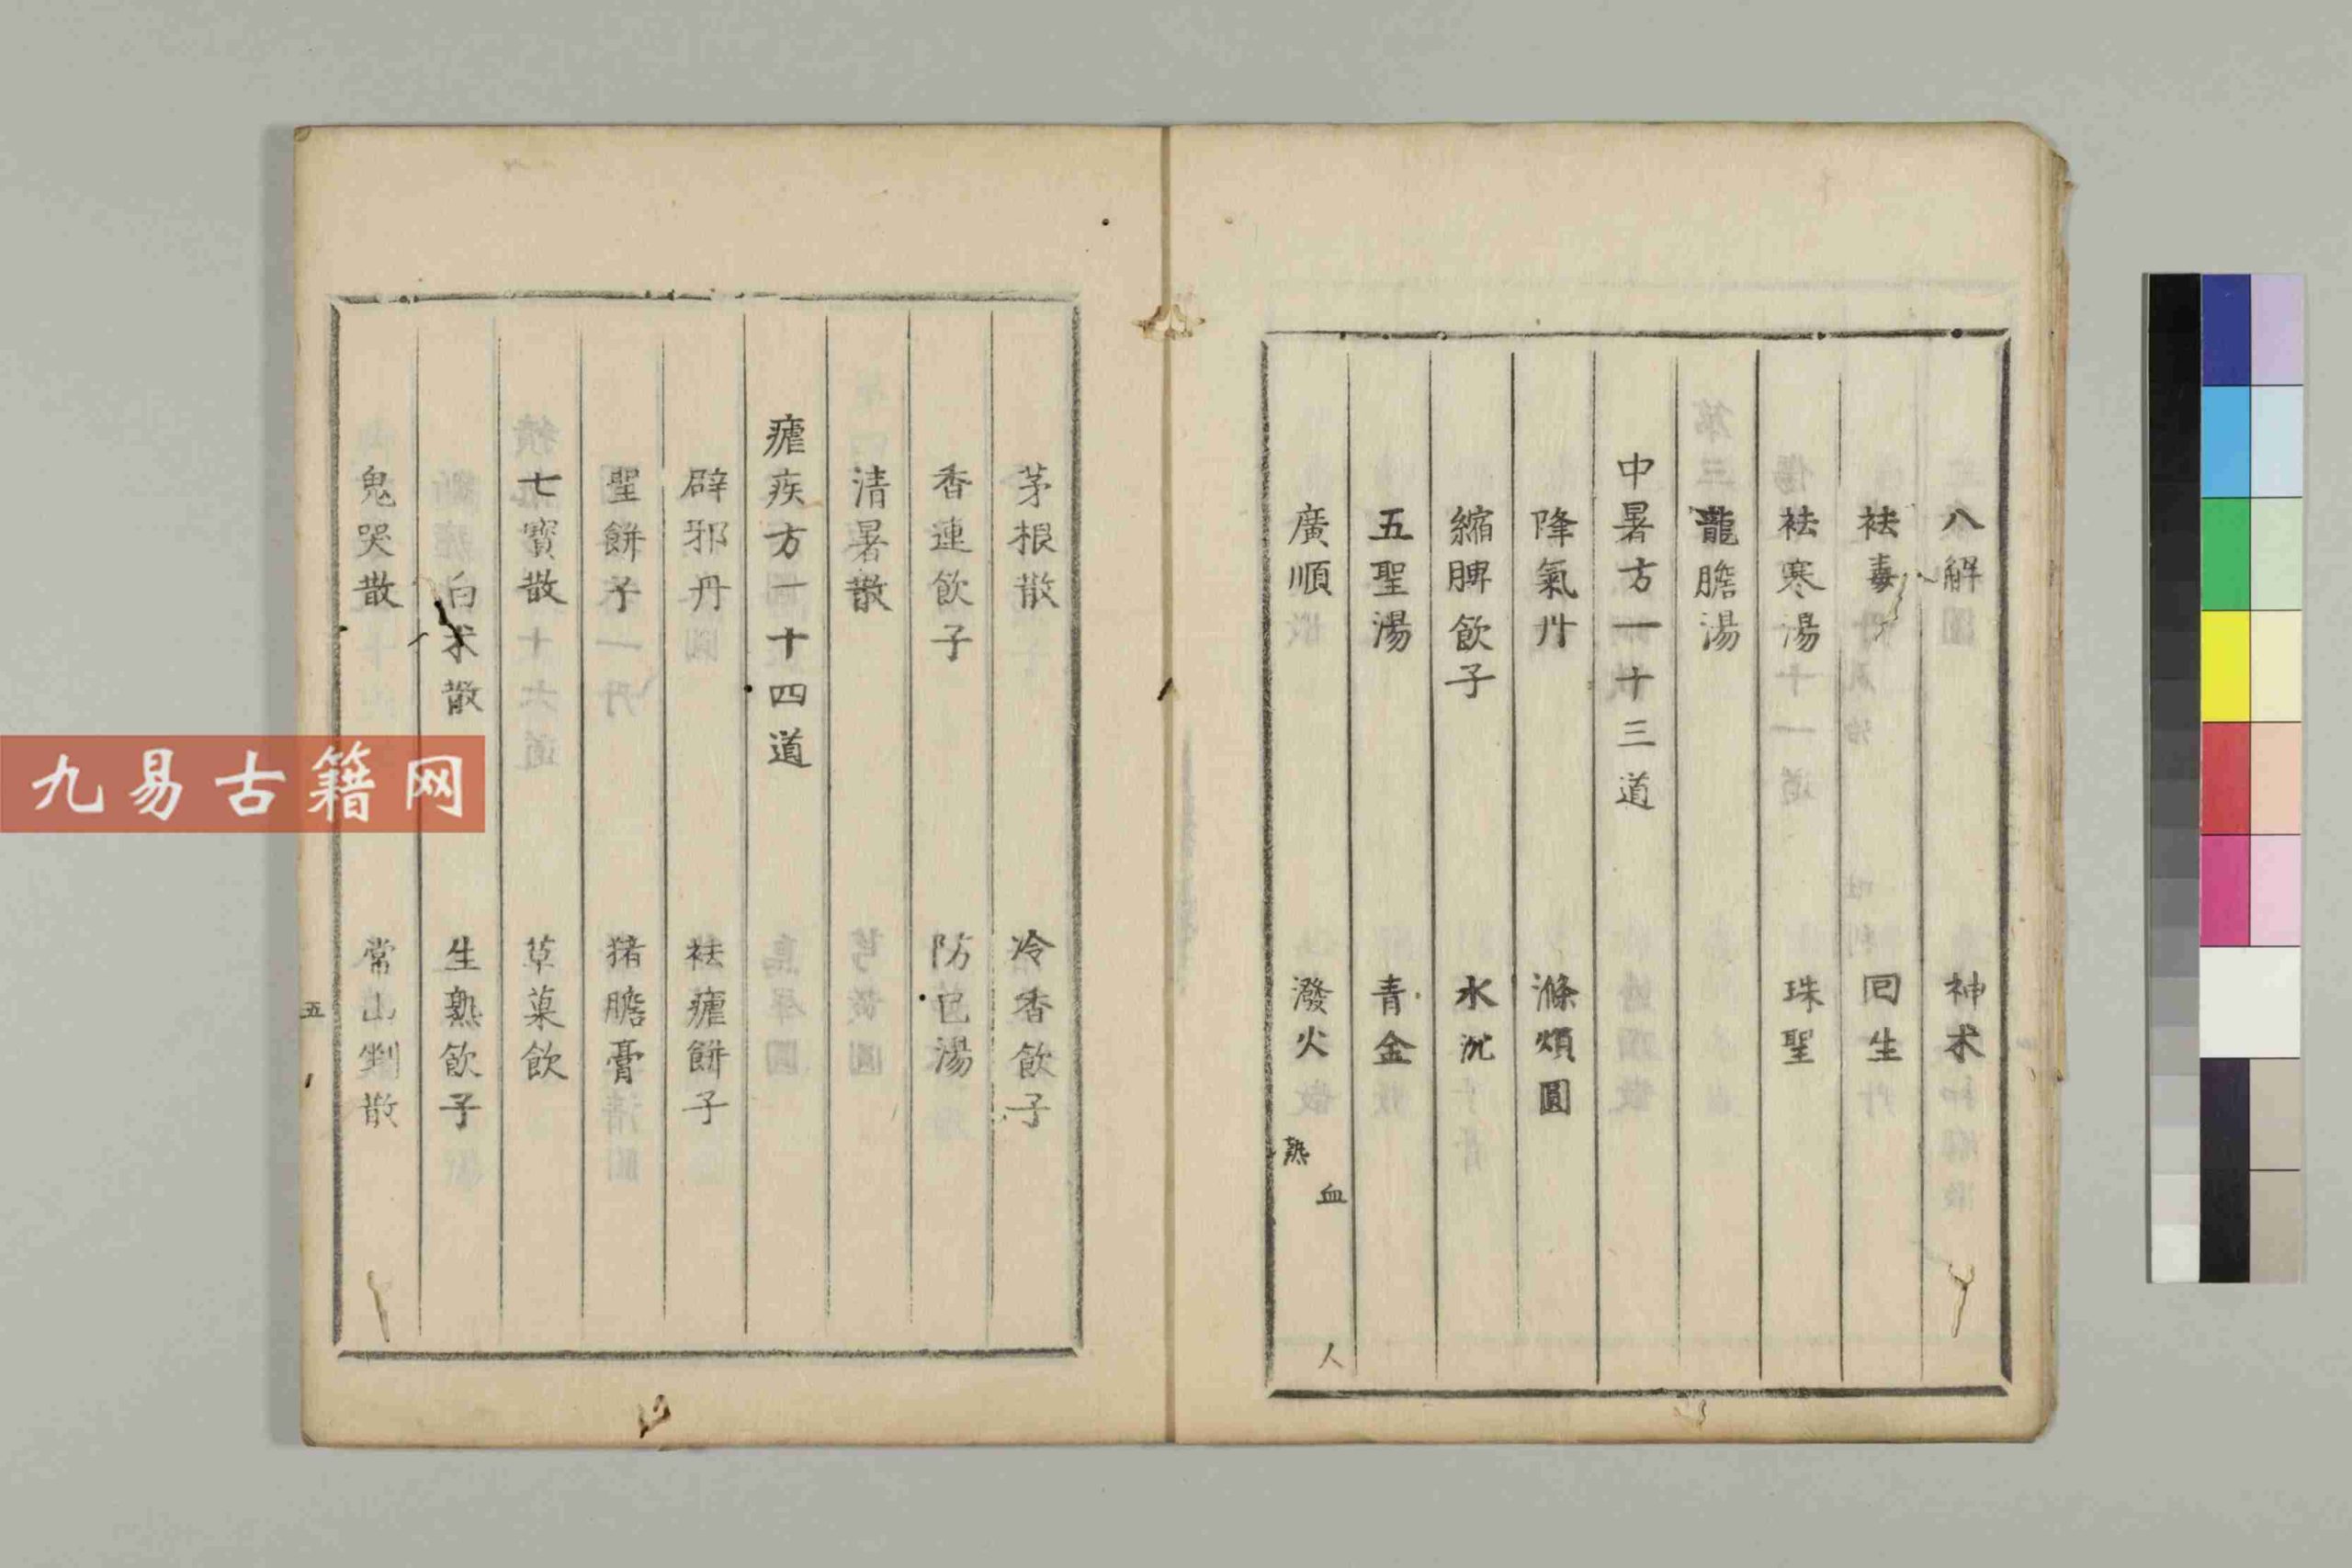 八解　神术
祛毒　回生
祛寒湯　珠聖
龍膽湯
中暑方一十三道
降氣丹　滌煩圓
縮脾飲子　水沉
五聖湯　青金
廣順　潑火
熟
血
人
茅根散　冷香飲子
香連飲子　防已湯
清暑散
瘧疾方一十四道
辟邪丹　祛瘧餅子
聖餅子　猪膽膏
七寶散　草菓飲
白术散　生熟飲子
鬼哭散　常山剉散
五
九易古籍网